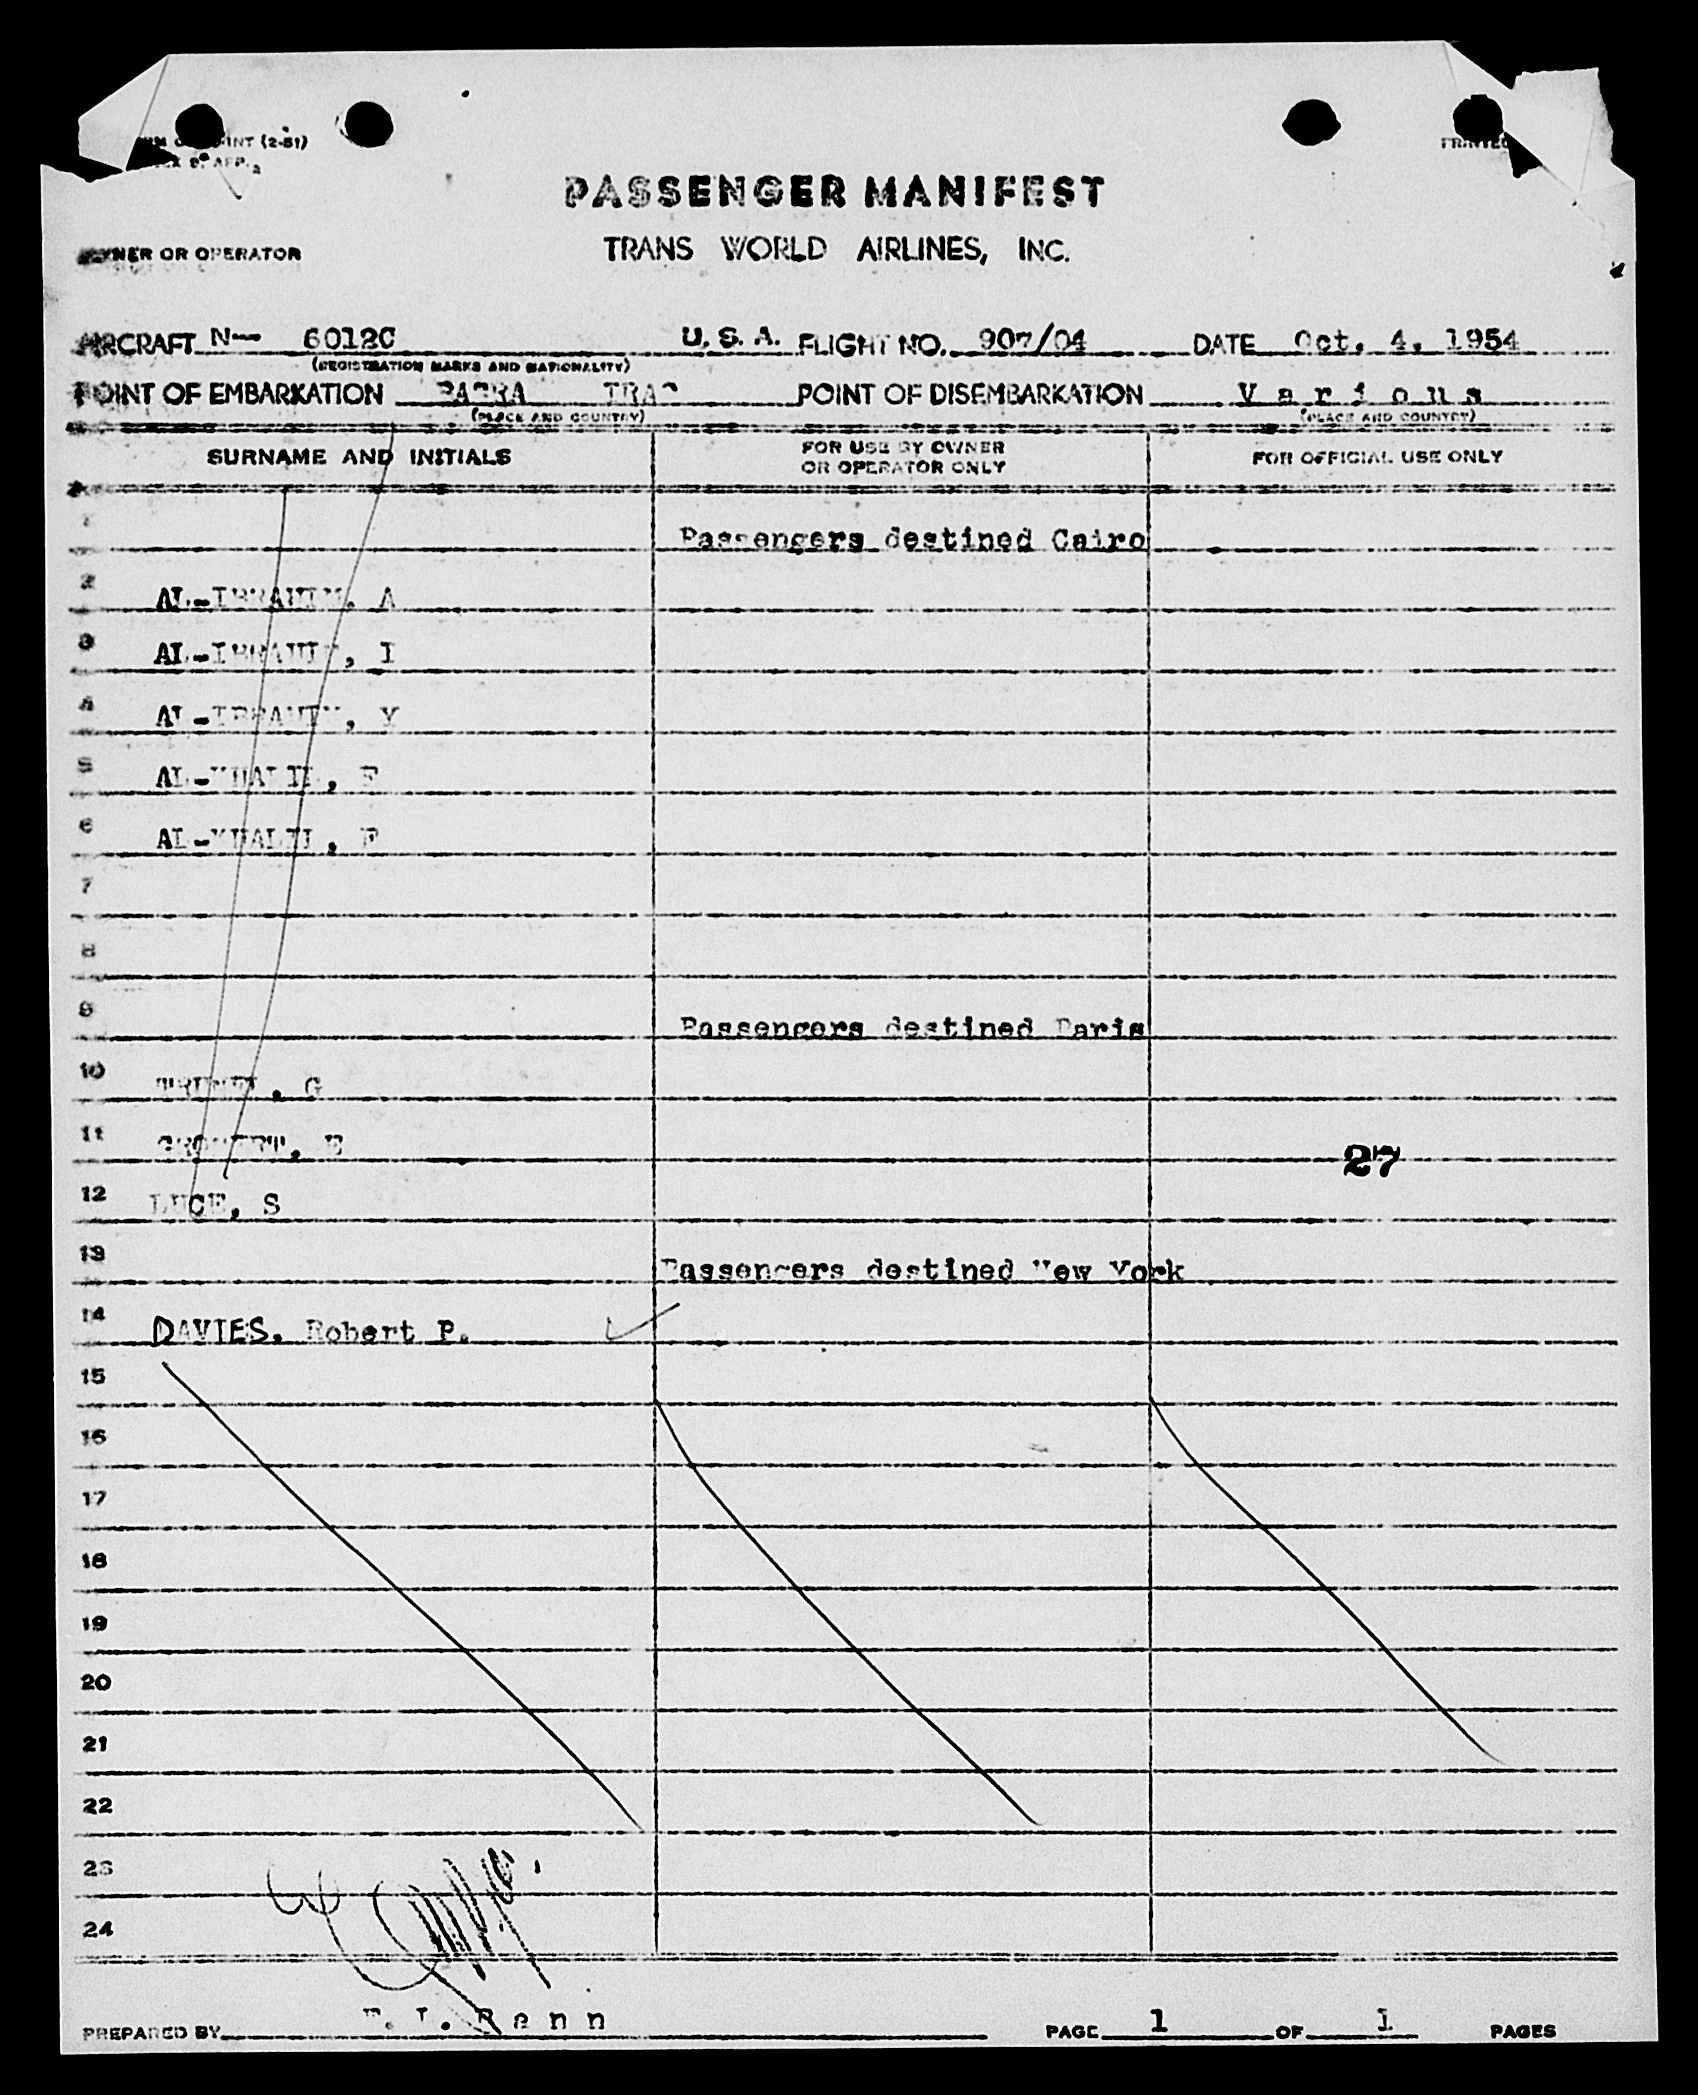 INT (2-51)
PRINTED
PASSENGER MANIFEST
OWNER OR OPERATOR TRANS WORLD AIRLINES, INC.
AIRCRAFT N— 6012C U. S. A. FLIGHT NO. 907/04 DATE Oct. 4, 1954
(REGISTRATION MARKS AND NATIONALITY)
POINT OF EMBARKATION BASRA IRAQ POINT OF DISEMBARKATION V a r i o u s
(PLACE AND COUNTRY) (PLACE AND COUNTRY)
SURNAME AND INITIALS FOR USE BY OWNER OR OPERATOR ONLY FOR OFFICIAL USE ONLY
1 Passengers destined Cairo
2 AL-IBRAHIM, A
3 AL-IBRAHIM, I
4 AL-IBRAHIM, Y
5 AL-KHALIL, F
6 AL-KHALIL, F
7
8
9 Passengers destined Paris
10 G
11 E
27
12 LUCE, S
13 Passengers destined New York
14 DAVIES, Robert P.
15
16
17
18
19
20
21
22
23
24
PREPARED BY R e n n PAGE 1 OF 1 PAGES